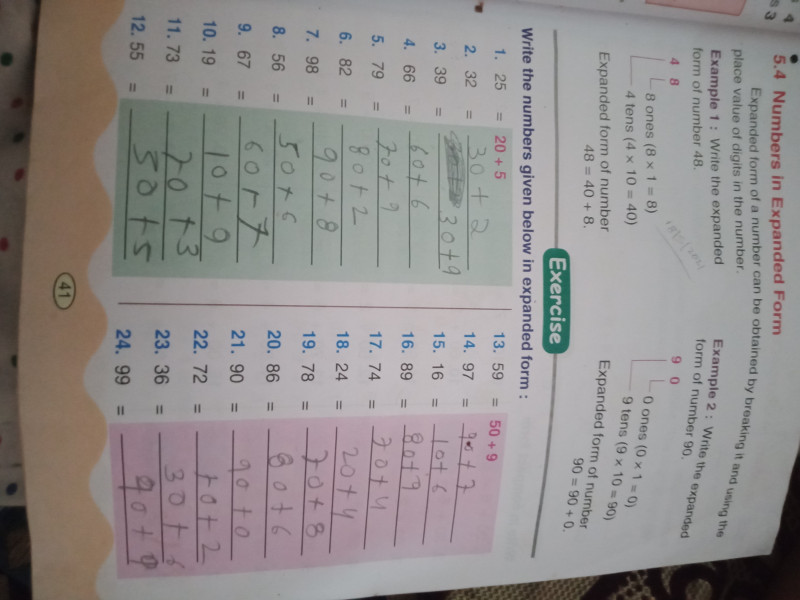 5.4 Numbers in Expanded Form
Expanded form of a number can be obtained by breaking it and using the
place value of digits in the number.
Example 1 : Write the expanded
form of number 48.
4 8
8 ones (8 × 1 = 8)
4 tens (4 × 10 = 40)
Expanded form of number
48 = 40 + 8.
Example 2 : Write the expanded
form of number 90.
9 0
0 ones (0 × 1 = 0)
9 tens (9 × 10 = 90)
Expanded form of number
90 = 90 + 0.
Exercise
Write the numbers given below in expanded form :
1. 25 = 20 + 5
2. 32 = 30 + 2
3. 39 = 30+9
4. 66 = 60+6
5. 79 = 70+9
6. 82 = 80+2
7. 98 = 90+8
8. 56 = 50+6
9. 67 = 60+7
10. 19 = 10+9
11. 73 = 70+3
12. 55 = 50+5
13. 59 = 50 + 9
14. 97 = 90+7
15. 16 = 10+6
16. 89 = 80+9
17. 74 = 70+4
18. 24 = 20+4
19. 78 = 70+8
20. 86 = 80+6
21. 90 = 90+0
22. 72 = 70+2
23. 36 = 30+6
24. 99 = 90+9
41